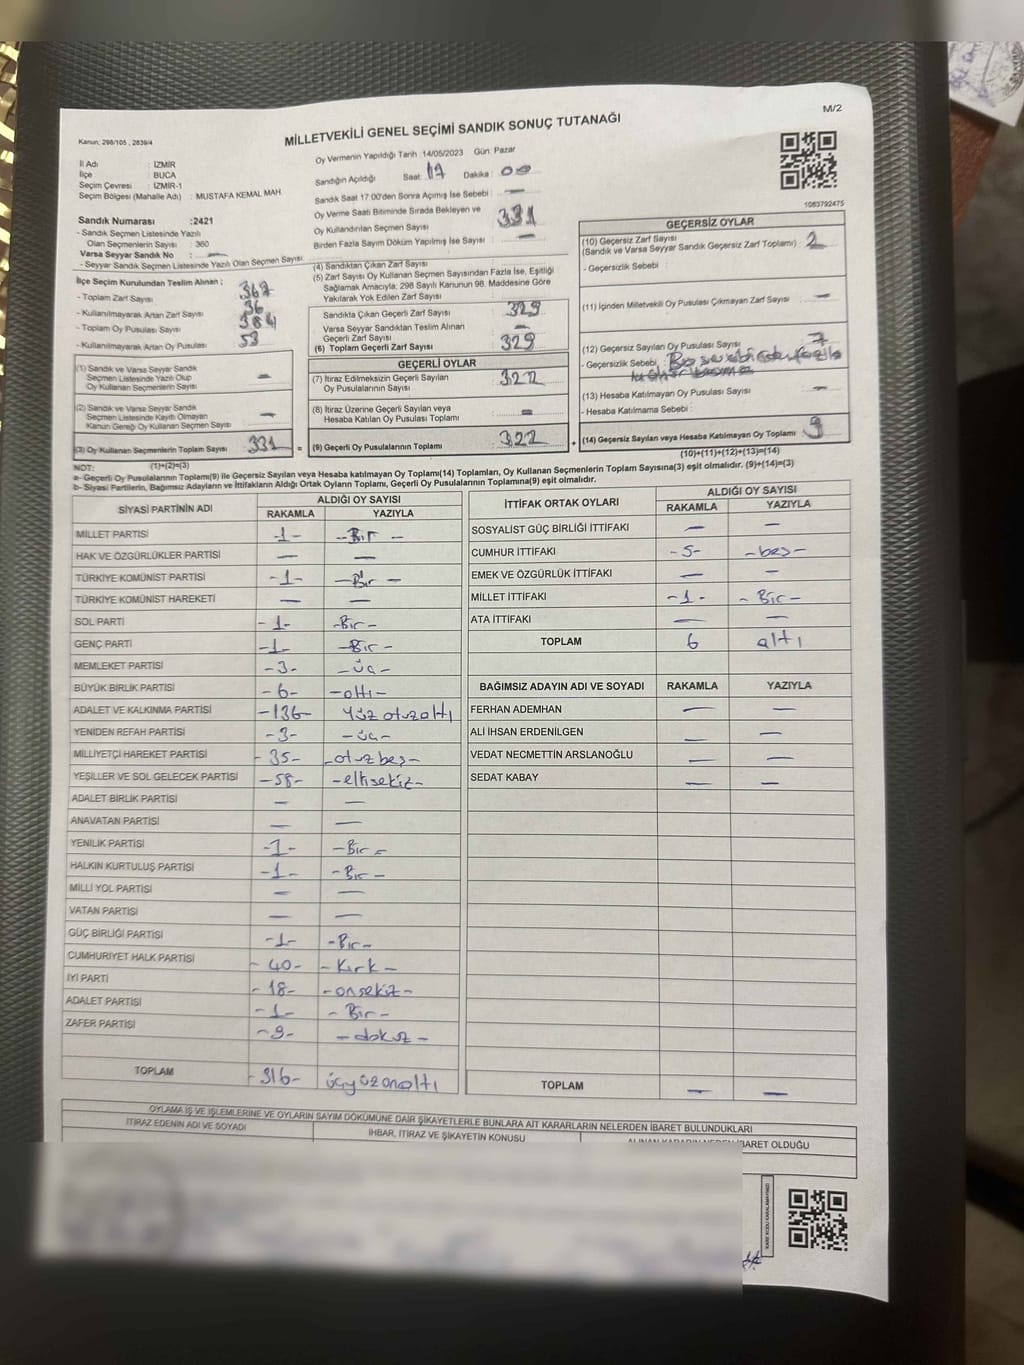 M/2
MİLLETVEKİLİ GENEL SEÇİMİ SANDIK SONUÇ TUTANAĞI
Kanun; 298/105 , 2839/4
İl Adı : İZMİR
İlçe : BUCA
Seçim Çevresi : İZMİR-1
Seçim Bölgesi (Mahalle Adı) : MUSTAFA KEMAL MAH.
Sandık Numarası :2421
- Sandık Seçmen Listesinde Yazılı
Olan Seçmenlerin Sayısı : 360
Varsa Seyyar Sandık No : —
- Seyyar Sandık Seçmen Listesinde Yazılı Olan Seçmen Sayısı:
Oy Vermenin Yapıldığı Tarih :14/05/2023 Gün: Pazar
Sandığın Açıldığı Saat: 17 Dakika : 00
Sandık Saat 17:00'den Sonra Açımış İse Sebebi : —
Oy Verme Saati Bitiminde Sırada Bekleyen ve
Oy Kullandırılan Seçmen Sayısı : 331
Birden Fazla Sayım Döküm Yapılmış İse Sayısı : —
1083792475
İlçe Seçim Kurulundan Teslim Alınan ;
- Toplam Zarf Sayısı : 367
- Kullanılmayarak Artan Zarf Sayısı : 36
- Toplam Oy Pusulası Sayısı : 384
- Kullanılmayarak Artan Oy Pusulası : 53
(1) Sandık ve Varsa Seyyar Sandık
Seçmen Listesinde Yazılı Olup
Oy Kullanan Seçmenlerin Sayısı : —
(2) Sandık ve Varsa Seyyar Sandık
Seçmen Listesinde Kayıtlı Olmayan
Kanun Gereği Oy Kullanan Seçmen Sayısı : —
(3) Oy Kullanan Seçmenlerin Toplam Sayısı : 331
(1)+(2)=(3)
(4) Sandıktan Çıkan Zarf Sayısı :
(5) Zarf Sayısı Oy Kullanan Seçmen Sayısından Fazla İse, Eşitliği
Sağlamak Amacıyla; 298 Sayılı Kanunun 98. Maddesine Göre
Yakılarak Yok Edilen Zarf Sayısı :
Sandıkta Çıkan Geçerli Zarf Sayısı : 329
Varsa Seyyar Sandıktan Teslim Alınan
Geçerli Zarf Sayısı : —
(6) Toplam Geçerli Zarf Sayısı : 329
GEÇERLİ OYLAR
(7) İtiraz Edilmeksizin Geçerli Sayılan
Oy Pusulalarının Sayısı : 322
(8) İtiraz Üzerine Geçerli Sayılan veya
Hesaba Katılan Oy Pusulası Toplamı : —
= (9) Geçerli Oy Pusulalarının Toplamı : 322 +
GEÇERSİZ OYLAR
(10) Geçersiz Zarf Sayısı
(Sandık ve Varsa Seyyar Sandık Geçersiz Zarf Toplamı) : 2
- Geçersizlik Sebebi :
(11) İçinden Milletvekili Oy Pusulası Çıkmayan Zarf Sayısı : —
(12) Geçersiz Sayılan Oy Pusulası Sayısı : 7
- Geçersizlik Sebebi :
(13) Hesaba Katılmayan Oy Pusulası Sayısı : —
- Hesaba Katılmama Sebebi :
(14) Geçersiz Sayılan veya Hesaba Katılmayan Oy Toplamı : 9
(10)+(11)+(12)+(13)=(14)
NOT:
a- Geçerli Oy Pusulalarının Toplamı(9) ile Geçersiz Sayılan veya Hesaba katılmayan Oy Toplamı(14) Toplamları, Oy Kullanan Seçmenlerin Toplam Sayısına(3) eşit olmalıdır. (9)+(14)=(3)
b- Siyasi Partilerin, Bağımsız Adayların ve İttifakların Aldığı Ortak Oyların Toplamı, Geçerli Oy Pusulalarının Toplamına(9) eşit olmalıdır.
SİYASİ PARTİNİN ADI ALDIĞI OY SAYISI
RAKAMLA YAZIYLA
MİLLET PARTİSİ -1- -Bir-
HAK VE ÖZGÜRLÜKLER PARTİSİ — —
TÜRKİYE KOMÜNİST PARTİSİ -1- -Bir-
TÜRKİYE KOMÜNİST HAREKETİ — —
SOL PARTİ -1- -Bir-
GENÇ PARTİ -1- -Bir-
MEMLEKET PARTİSİ -3- -üç-
BÜYÜK BİRLİK PARTİSİ -6- -altı-
ADALET VE KALKINMA PARTİSİ -136- yüz otuzaltı
YENİDEN REFAH PARTİSİ -3- -üç-
MİLLİYETÇİ HAREKET PARTİSİ -35- -otuzbeş-
YEŞİLLER VE SOL GELECEK PARTİSİ -58- -ellisekiz-
ADALET BİRLİK PARTİSİ — —
ANAVATAN PARTİSİ — —
YENİLİK PARTİSİ -1- -Bir-
HALKIN KURTULUŞ PARTİSİ -1- -Bir-
MİLLİ YOL PARTİSİ — —
VATAN PARTİSİ — —
GÜÇ BİRLİĞİ PARTİSİ -1- -Bir-
CUMHURİYET HALK PARTİSİ -40- -Kırk-
İYİ PARTİ -18- -onsekiz-
ADALET PARTİSİ -1- -Bir-
ZAFER PARTİSİ -9- -dokuz-
TOPLAM -316- üçyüzonaltı
İTTİFAK ORTAK OYLARI ALDIĞI OY SAYISI
RAKAMLA YAZIYLA
SOSYALİST GÜÇ BİRLİĞİ İTTİFAKI — —
CUMHUR İTTİFAKI -5- -beş-
EMEK VE ÖZGÜRLÜK İTTİFAKI — —
MİLLET İTTİFAKI -1- -Bir-
ATA İTTİFAKI — —
TOPLAM 6 altı
BAĞIMSIZ ADAYIN ADI VE SOYADI RAKAMLA YAZIYLA
FERHAN ADEMHAN — —
ALİ İHSAN ERDENİLGEN — —
VEDAT NECMETTİN ARSLANOĞLU — —
SEDAT KABAY — —
TOPLAM — —
OYLAMA İŞ VE İŞLEMLERİNE VE OYLARIN SAYIM DÖKÜMÜNE DAİR ŞİKAYETLERLE BUNLARA AİT KARARLARIN NELERDEN İBARET BULUNDUKLARI
İTİRAZ EDENİN ADI VE SOYADI İHBAR, İTİRAZ VE ŞİKAYETİN KONUSU ALINAN KARARIN NEDEN İBARET OLDUĞU